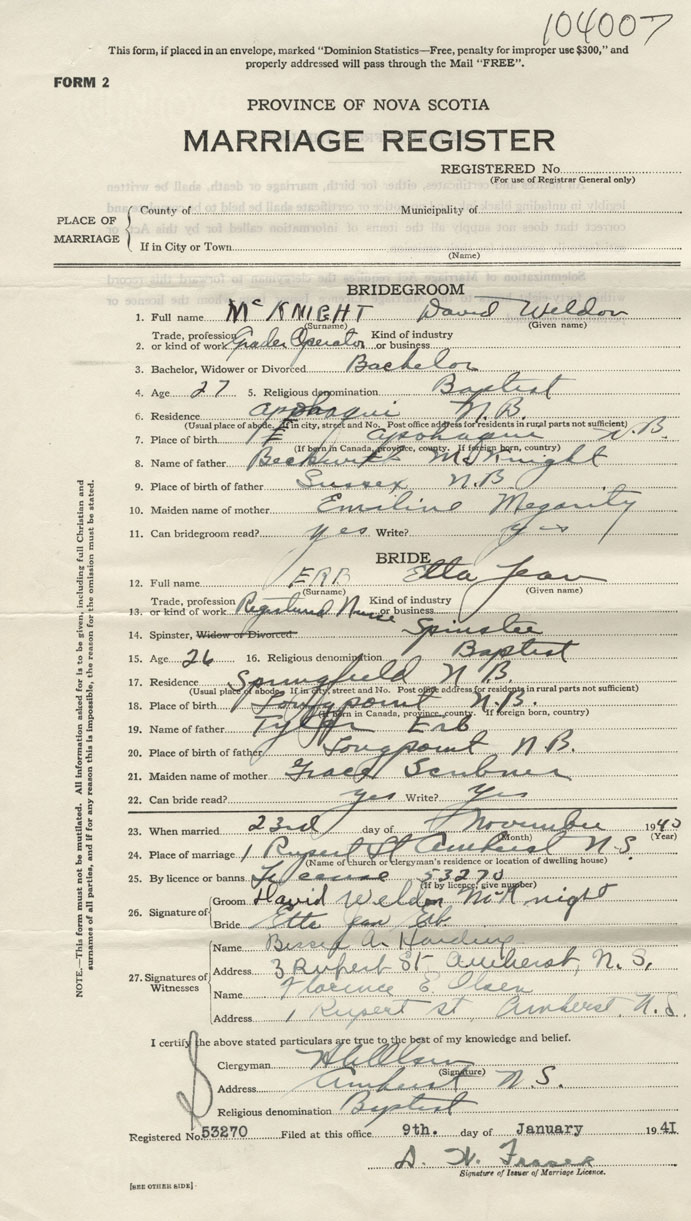 104007
This form, if placed in an envelope, marked "Dominion Statistics—Free, penalty for improper use $300," and
properly addressed will pass through the Mail "FREE".
FORM 2
PROVINCE OF NOVA SCOTIA
MARRIAGE REGISTER
REGISTERED No.
(For use of Registrar General only)
PLACE OF MARRIAGE
County of Municipality of
If in City or Town
(Name)
BRIDEGROOM
1. Full name McKNIGHT David Weldon
(Surname) (Given name)
Trade, profession Kind of industry
2. or kind of work Grader Operator or business
3. Bachelor, Widower or Divorced Bachelor
4. Age 27 5. Religious denomination Baptist
6. Residence Apohaqui N.B.
(Usual place of abode. If in city, street and No. Post office address for residents in rural parts not sufficient)
7. Place of birth Apohaqui N.B.
(If born in Canada, province, county. If foreign born, country)
8. Name of father Beckwith McKnight
9. Place of birth of father Sussex N.B
10. Maiden name of mother Emiline Megarity
11. Can bridegroom read? yes Write? yes
BRIDE
12. Full name ERB Etta Jean
(Surname) (Given name)
Trade, profession Kind of industry
13. or kind of work Registered Nurse or business
14. Spinster, Widow or Divorced Spinster
15. Age 26 16. Religious denomination Baptist
17. Residence Springfield N B.
(Usual place of abode. If in city, street and No. Post office address for residents in rural parts not sufficient)
18. Place of birth Longpoint N.B.
(If born in Canada, province, county. If foreign born, country)
19. Name of father Tyler Erb
20. Place of birth of father Longpoint N B.
21. Maiden name of mother Grace Scribner
22. Can bride read? yes Write? yes
23. When married 23rd day of November 1940
(Month) (Year)
24. Place of marriage 1 Rupert St Amherst N S.
(Name of church or clergyman's residence or location of dwelling house)
25. By licence or banns License 53270
(If by licence, give number)
26. Signature of
Groom David Weldon McKnight
Bride Etta Jean Erb
27. Signatures of Witnesses
Name A. Harding
Address 3 Rupert St Amherst, N.S.
Name Florence E Olsen
Address 1 Rupert st, Amherst N.S.
I certify the above stated particulars are true to the best of my knowledge and belief.
Clergyman Olsen
(Signature)
Address Amherst N S.
Religious denomination Baptist
Registered No. 53270 Filed at this office 9th. day of January 1941
D. H. Fraser
Signature of Issuer of Marriage Licence.
[SEE OTHER SIDE]
NOTE.—This form must not be mutilated. All information asked for is to be given, including full Christian and
surnames of all parties, and if for any reason this is impossible, the reason for the omission must be stated.